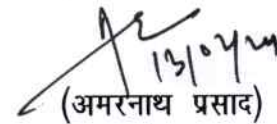 13/02/24
(अमरनाथ प्रसाद)